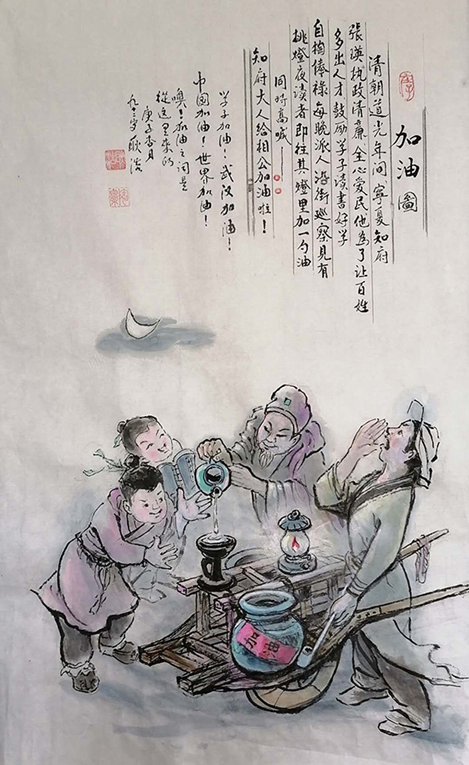 加油圖
清朝道光年间寧夏知府
張瑛执政清廉全心爱民他為了让百姓
多出人才鼓励学子读书好学
自掏俸禄每晚派人沿街巡察见有
挑燈夜读者即往其燈里加一勺油
同时高喊——
知府大人给相公加油啦！
学子加油！武汉加油！
中国加油！世界加油！
噢！加油之词是
從这里来的
庚子杏月
加油